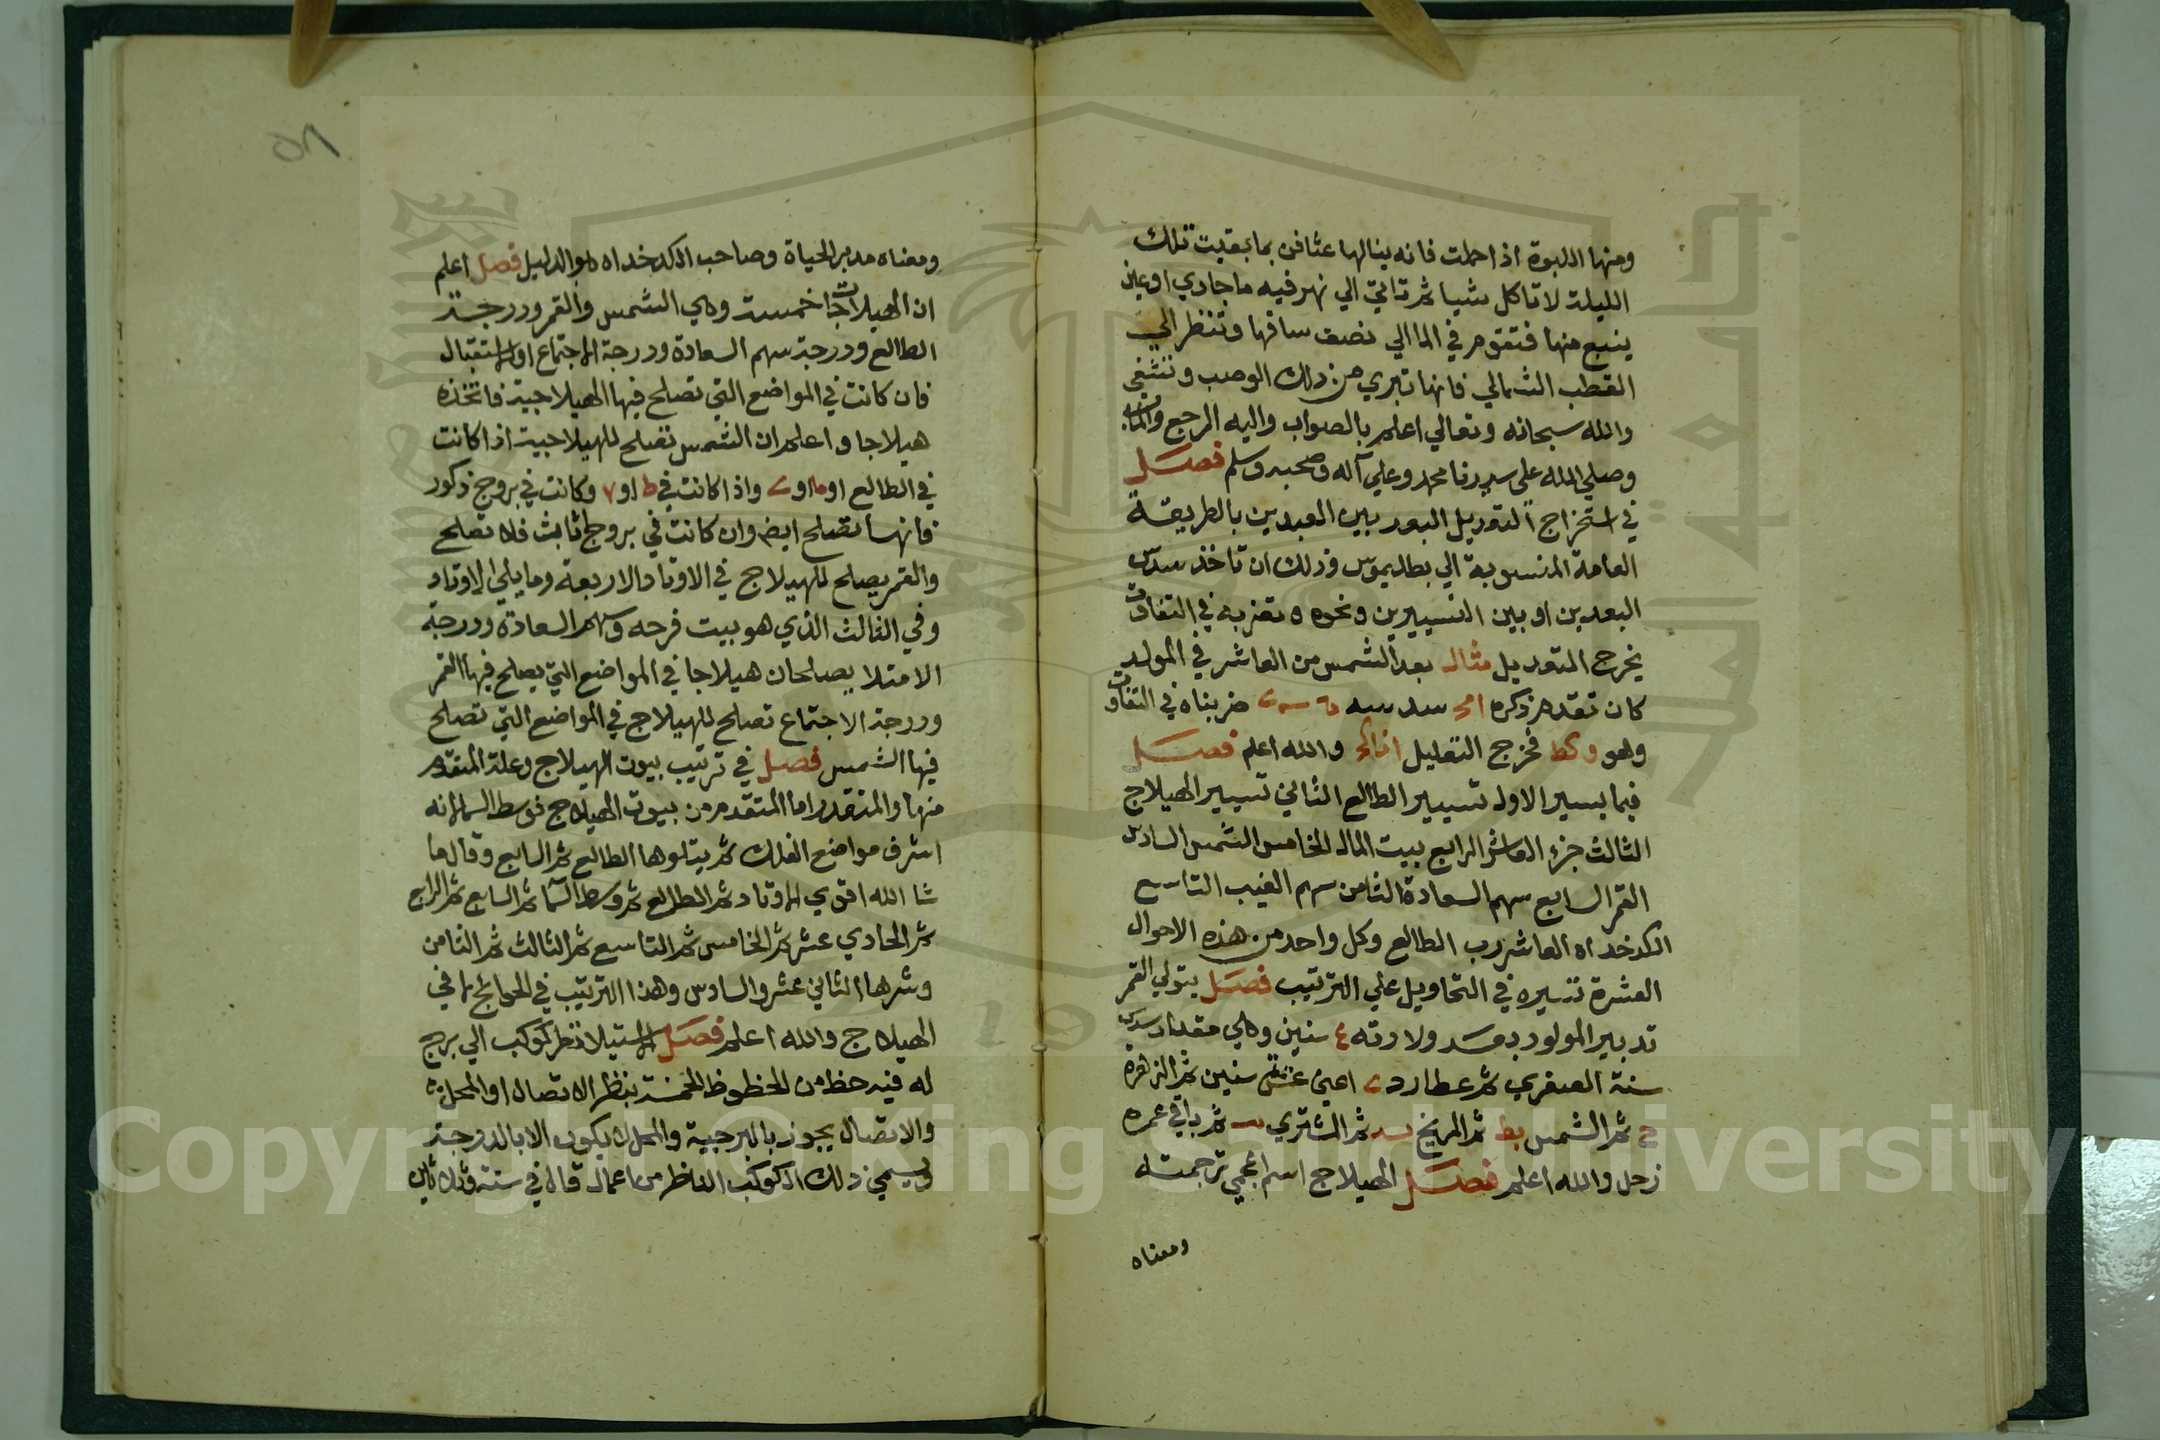 ومنها اللبوة اذا حملت فانه ينالها عثا فى بما بقيت تلك
الليلة لا تاكل شيا ثم تاتي الي نهر فيه ما جادي او عين
ينبع منها فتقوم في الما الي نصف ساقها وتنظر الي
القطب الشمالي فانها تبري من ذلك الوصب وتشفي
والله سبحانه وتعالي اعلم بالصواب واليه المرجع والماب
وصلي الله على سيدنا محمد وعلي آله وصحبه وسلم فصل
في استخراج التعديل البعد بين البعدين بالطريقة
العامة المنسوبة الي بطليموس وذلك ان تاخذ سدس
البعدين او بين التسييرين ونحوه وتضربه في التفاوت
يخرج التعديل مثال بعد الشمس من العاشر في المولد
كان تقدم ذكره سدسه ضربناه في التفاوت
وهو و كط فخرج التعديل والله اعلم فصل
فيما يسير الاول تسيير الطالع الثاني تسيير الهيلاج
الثالث جزء العاشر الرابع بيت المال الخامس الشمس السادس
القمر السابع سهم السعادة الثامن سهم الغيب التاسع
الكدخداه العاشر رب الطالع وكل واحد من هذه الاحوال
العشرة تسيره في التحاويل علي الترتيب فصل يتولي القمر
تدبير المولود بعد ولادته ٤ سنين وهي مقدار سدس
سنة الصغري ثم عطارد ي اعني عشر سنين ثم الزهرة
ح ثم الشمس يط ثم المريخ يه ثم المشتري يب ثم باقي عمره
زحل والله اعلم فصل الهيلاج اسم اعجمي ترجمته
ومعناه
٥٨
ومعناه مدبر الحياة وصاحب الكدخداه هو الدليل فصل اعلم
ان الهيلاجات خمسة وهي الشمس والقمر ودرجة
الطالع ودرجة سهم السعادة ودرجة الاجتماع او الاستقبال
فان كانت في المواضع التي تصلح فيها الهيلاجية فاتخذه
هيلاجا واعلم ان الشمس تصلح للهيلاجية اذا كانت
في الطالع او يا او ي واذا كانت في ط او ٧ وكانت في بروج ذكور
فانها تصلح ايض وان كانت في بروج اناث فلا تصلح
والقمر يصلح للهيلاج في الاوتاد الاربعة وما يلي الاوتاد
وفي الثالث الذي هو بيت فرحه وسهم السعادة ودرجة
الامتلا يصلحان هيلاجا في المواضع التي يصلح فيها القمر
ودرجة الاجتماع تصلح للهيلاج في المواضع التي تصلح
فيها الشمس فصل في ترتيب بيوت الهيلاج وعلة المتقدم
منها والمتقدم اما المتقدم من بيوت الهيلاج فوسط السما لانه
اشرف مواضع الفلك ثم يتلوها الطالع ثم السابع وقال ما
شا الله اقوي الاوتاد ثم الطالع ثم وسط السما ثم السابع ثم الرابع
ثم الحادي عشر ثم الخامس ثم التاسع ثم الثالث ثم الثامن
وشرها الثاني عشر والسادس وهذا الترتيب في الحوائج لا في
الهيلاج والله اعلم فصل الاستيلا نظر كوكب الي برج
له فيه حظ من الحظوظ الخمسة بنظر الاتصال او المحل
والاتصال يجوز بالبرجية والمحل لا يكون الا بالدرجة
ويسمي ذلك الكوكب الناظر من اعمال قال في ستة وثلاثين